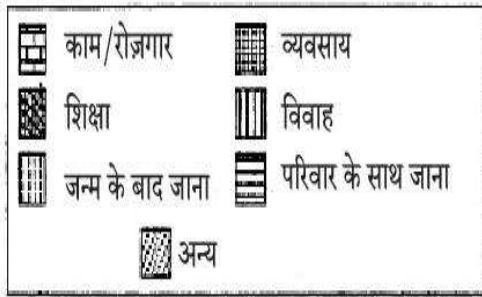 काम/रोज़गार व्यवसाय
शिक्षा विवाह
जन्म के बाद जाना परिवार के साथ जाना
अन्य